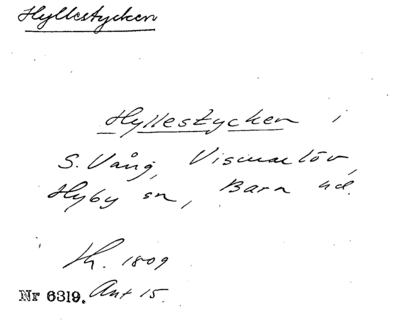 Hyllestycken
Hyllestycken i
S. Vång, Vismarlöv,
Hyby sn, Bara hd.
Kh. 1809
Nr 6319. Ant 15.